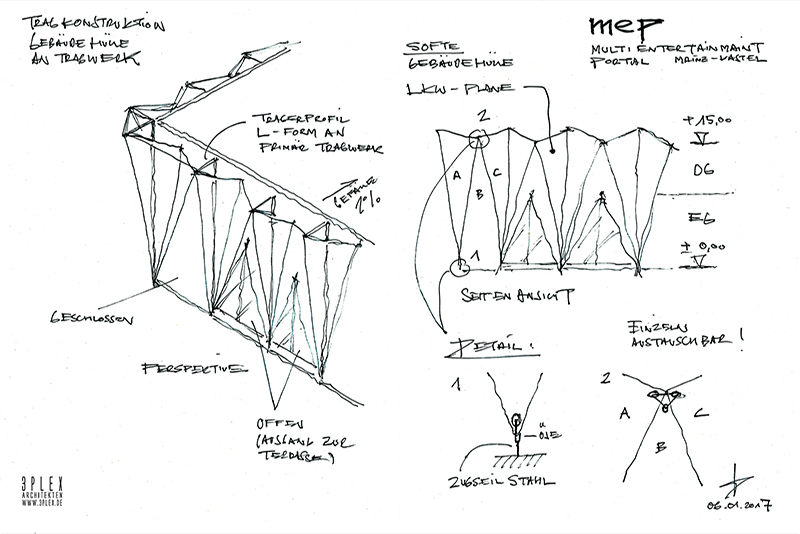 TRAGKONSTRUKTION
GEBÄUDEHÜLLE
AN TRAGWERK
TRÄGERPROFIL
L-FORM AN
PRIMÄR TRAGWERK
GEFÄLLE
2%
GESCHLOSSEN
PERSPEKTIVE
OFFEN
(AUSGANG ZUR
TERRASSE)
3PLEX
ARCHITEKTEN
WWW.3PLEX.DE
SOFTE
GEBÄUDEHÜLLE
LKW-PLANE
mep
MULTI ENTERTAINMAINT
PORTAL MAINZ-KASTEL
2
A
B
C
1
+15,00
OG
EG
± 0,00
SEITENANSICHT
DETAIL:
1
ÖSE
ZUGSEIL STAHL
EINZELN
AUSTAUSCHBAR!
2
A
C
B
06.01.2017